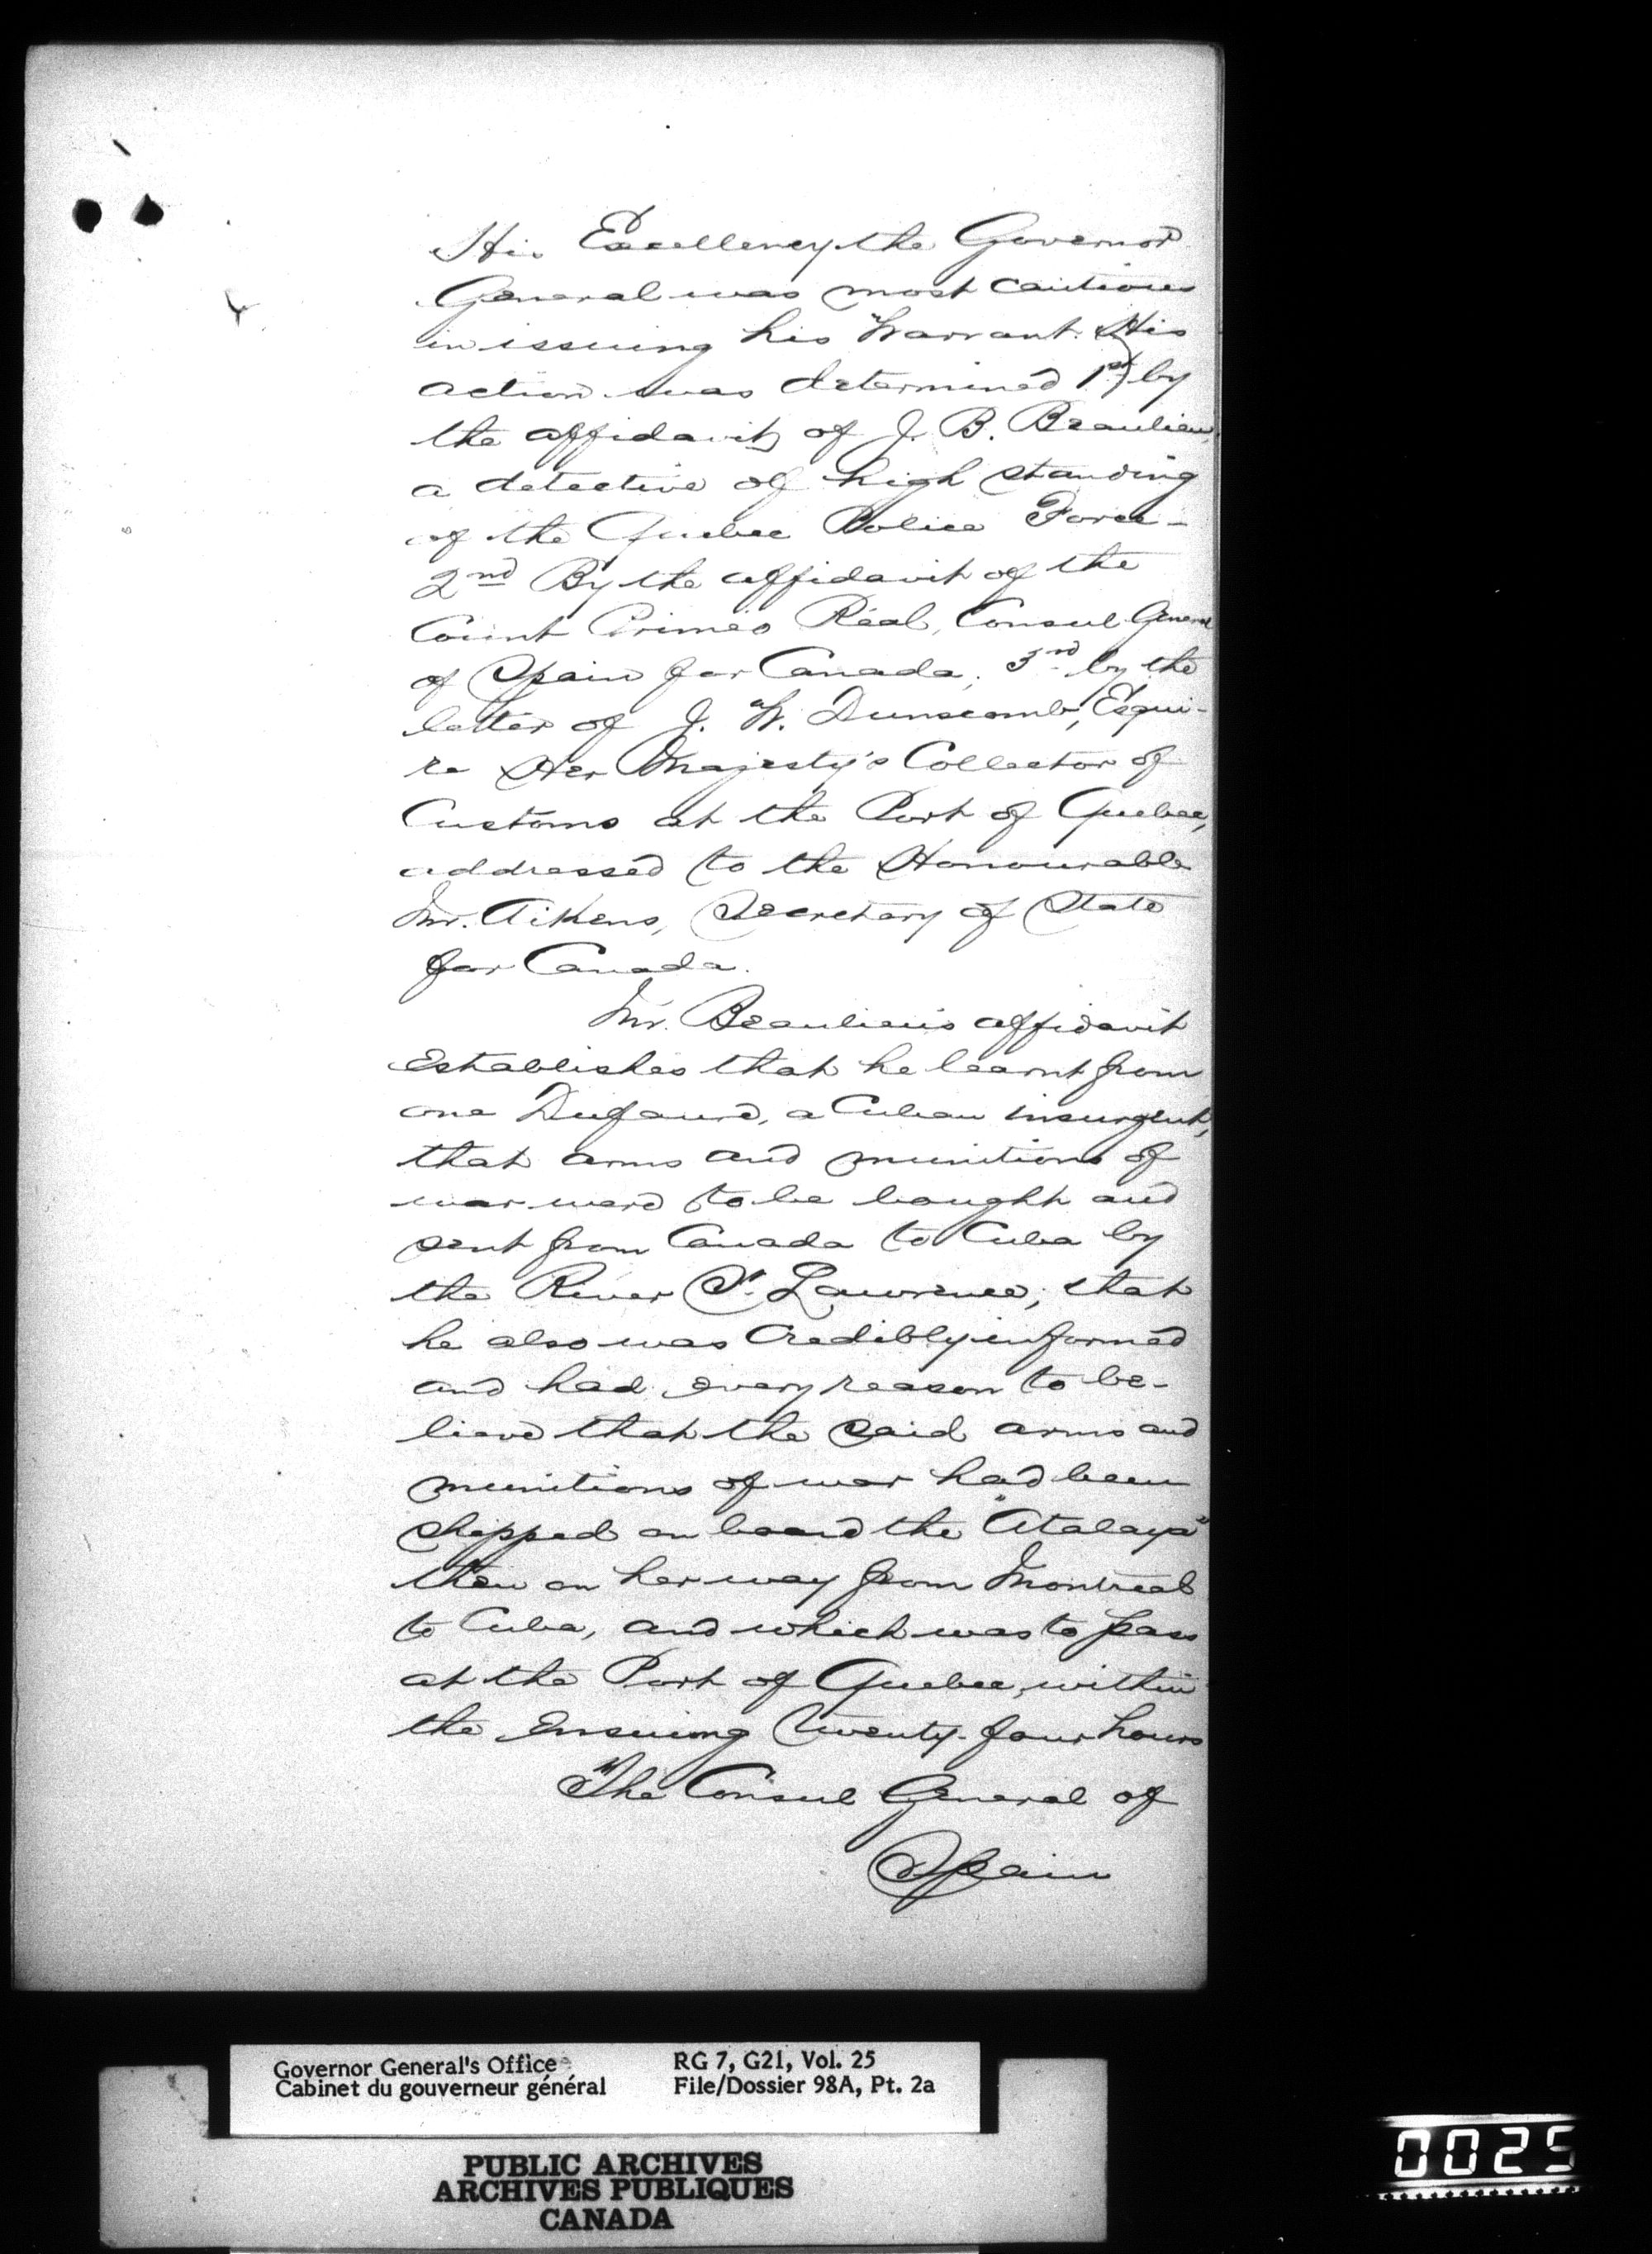 His Excellency the Governor
General was most cautious
in issuing his Warrant. His
action was determined 1st) by
the affidavit of J. B. Beaulieu,
a detective of high standing
of the Quebec Police Force -
2nd By the affidavit of the
Count Primeo Réal, Consul General
of Spain for Canada; 3rd by the
letter of J. W. Dunscomb, Esqui-
re Her Majesty's Collector of
Customs at the Port of Quebec,
addressed to the Honourable
Mr. Aikens, Secretary of State
for Canada.
Mr. Beaulieu's affidavit
Establishes that he learnt from
one Dufaure, a Cuban insurgent,
that arms and munitions of
war were to be bought and
sent from Canada to Cuba by
the River St. Lawrence; that
he also was Credibly informed
and had every reason to be-
lieve that the said arms and
munitions of war had been
shipped on board the "Atalaya"
then on her way from Montreal
to Cuba, and which was to pass
at the Port of Quebec, within
the Ensuing twenty-four hours
The Consul General of
Spain
Governor General's Office
Cabinet du gouverneur général
RG 7, G21, Vol. 25
File/Dossier 98A, Pt. 2a
PUBLIC ARCHIVES
ARCHIVES PUBLIQUES
CANADA
0025